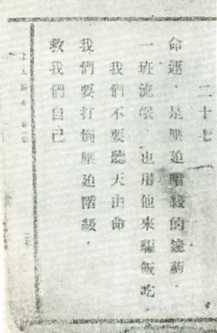 二十七
命運．是壓迫階級的藥．
一班流氓．也用他來騙飯吃．
我們不要聽天由命
我們要打倒壓迫階級．
救我們自己